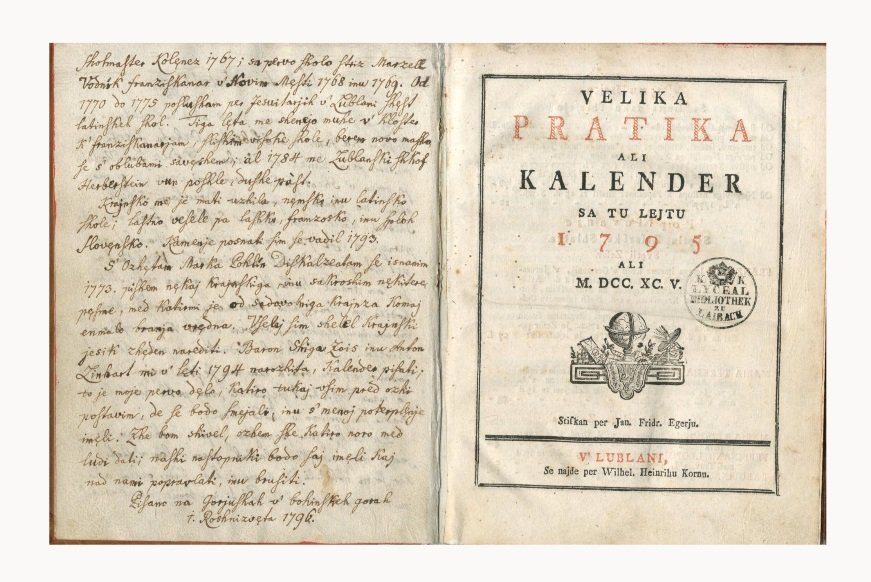 Shotmashter Kolenez 1767; sa pervo sholo striz Marzell
Vodnik franzishkanar v' Novim Mesti 1768 inu 1769. Od
1770 do 1775 poslusham per Jesuitarjih v' Lublani shest
latinskeh shol. Tiga leta me shenejo muhe v' Kloshter
k' franzishkanarjam; slishim vishshe shole, berem novo masho,
se s' oblubami saveshem; al 1784 me Lublanski Shkof
Herberstein vun poshle, dushe past.
Krajnsko me je mati uzhila, nemshko inu latinsko
shole; lastno veselje pa lashko, franzosko, inu sploh
Slovensko. Kamenje posnati sim se vadil 1793.
S' Ozhetam Marka Pohlin Diskalzeatam se isnanim
1773, pishem nekaj krajnskiga inu sakroshim nekitere
pesme, med katirmi je od sadovolniga krajnza komaj
enmalo branja vredna. Vselej sim shelel krajnski
jesik zheden narediti. Baron Shiga Zois inu Anton
Linhart mi v' leti 1794 narozhita, Kalender pisati;
to je moje pervo delo, katiro tukaj vsim pred ozhi
postavim, de se bodo smejali, inu s' menoj poterplenje
imeli. Zhe bom shivel, ozhem she katiro noro med
ludi dati; nashi nastopniki bodo saj imeli kaj
nad nami popravlati, inu brusiti.
Pisano na Gorjushah v bohinskeh gorah
1. Roshnizveta 1796.
VELIKA
PRATIKA
ALI
KALENDER
SA TU LEJTU
1795
ALI
M. DCC. XC. V.
K K
LYCEAL
BIBLIOTHEK
ZU
LAIBACH
Stiskan per Jan. Fridr. Egerju.
V' LUBLANI,
Se najde per Wilhel. Heinrihu Kornu.